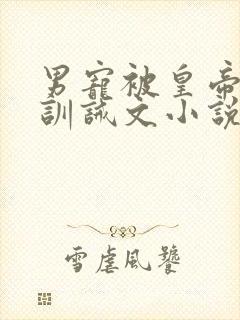 男寵被皇帝
訓誡文小説
雪虐風饕